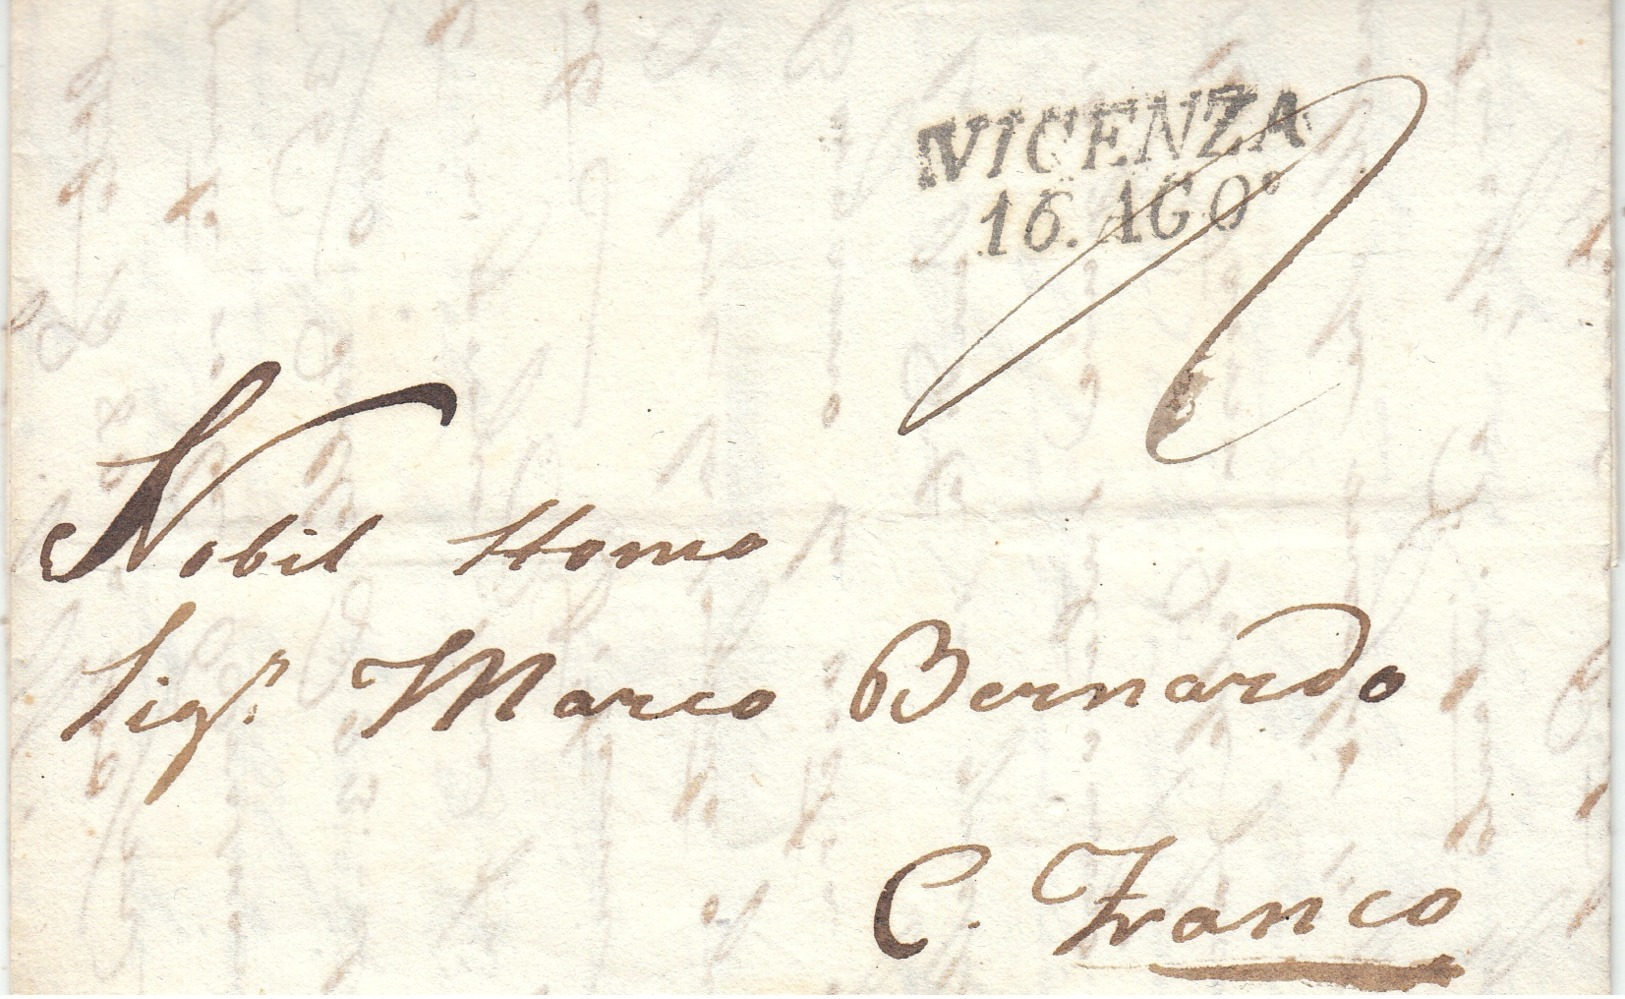 VICENZA
16. AGO°
Nobil Homo
Sigr Marco Bernardo
C. Franco